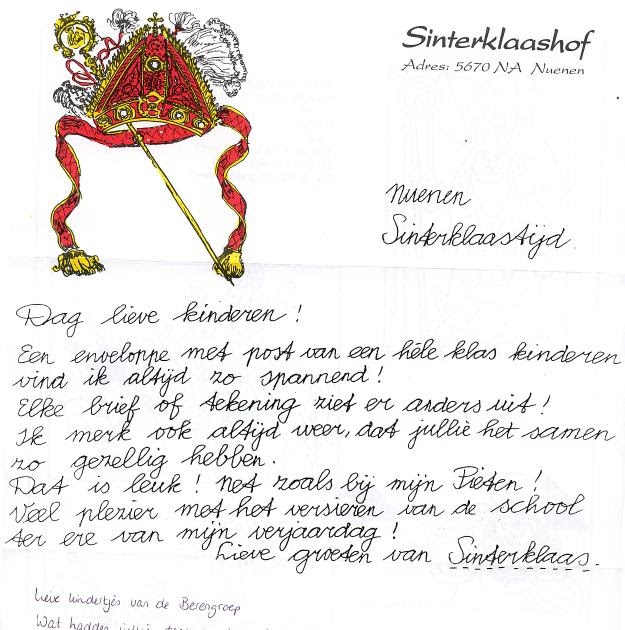 Sinterklaashof
Adres: 5670 NA Nuenen
Nuenen
Sinterklaastijd.
Dag lieve kinderen!
Een enveloppe met post van een héle klas kinderen
vind ik altijd zo spannend!
Elke brief of tekening ziet er anders uit!
Ik merk ook altijd weer, dat jullie het samen
zo gezellig hebben.
Dat is leuk! Net zoals bij mijn Pieten!
Veel plezier met het versieren van de school
ter ere van mijn verjaardag!
Lieve groeten van Sinterklaas.
Lieve kindertjes van de Berengroep
Wat hadden jullie